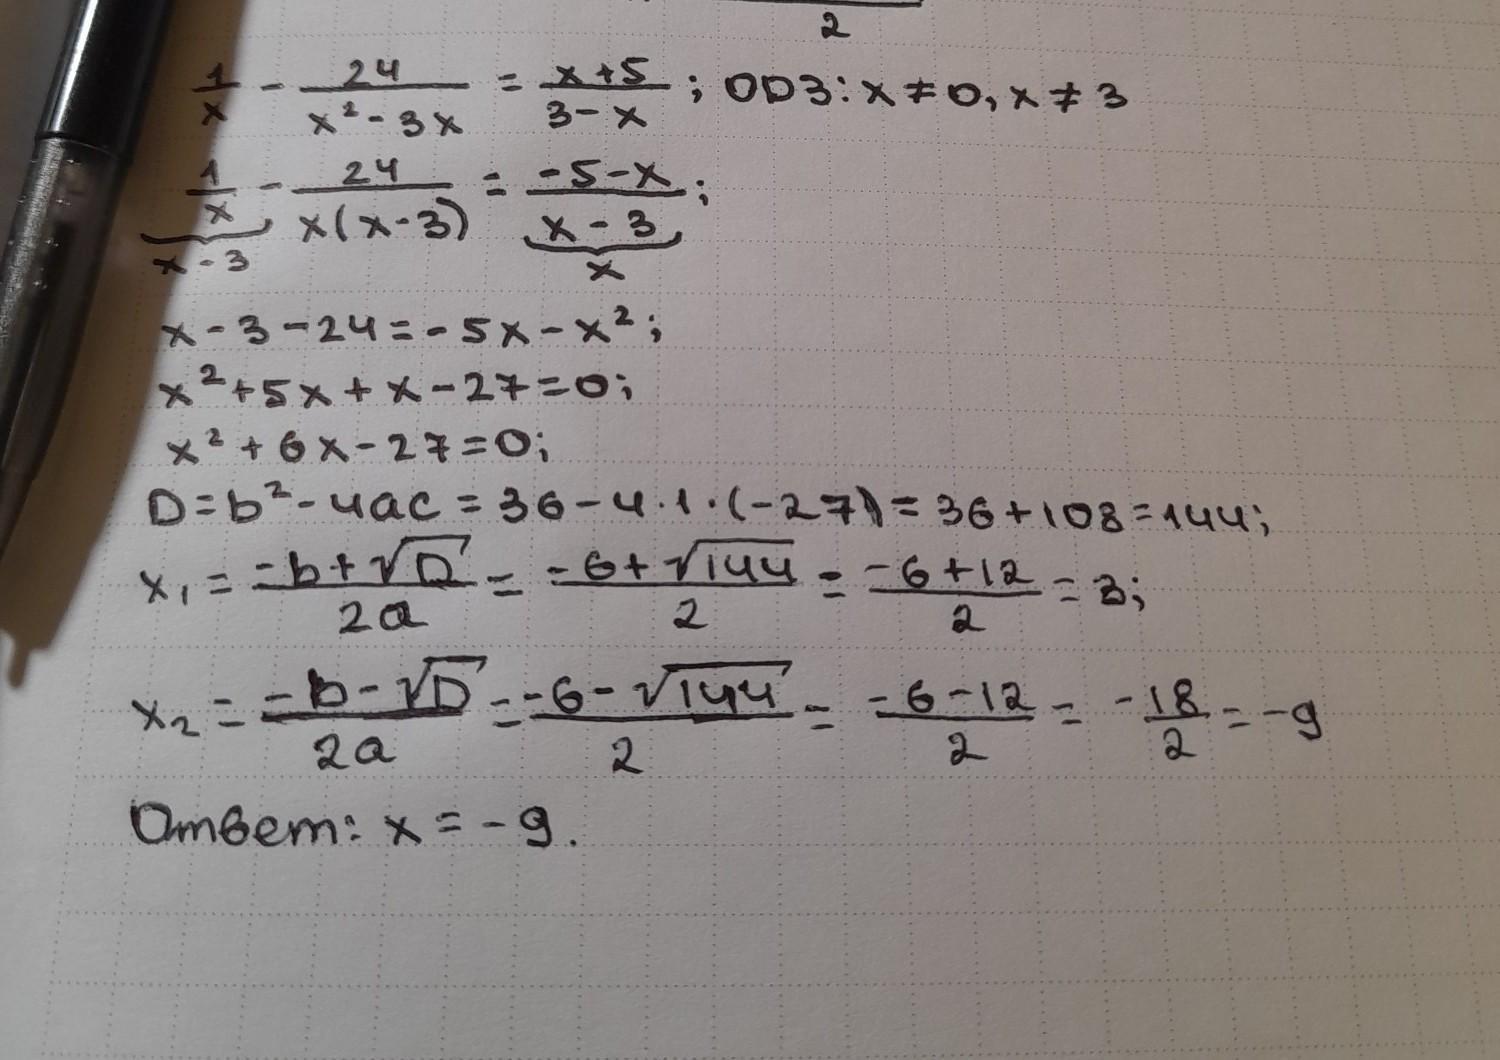 2
1/x - 24/(x² - 3x) = (x+5)/(3-x); ОDЗ: x ≠ 0, x ≠ 3
1/x - 24/(x(x-3)) = (-5-x)/(x-3);
x-3 x
x - 3 - 24 = -5x - x²;
x² + 5x + x - 27 = 0;
x² + 6x - 27 = 0;
D = b² - 4ac = 36 - 4·1·(-27) = 36 + 108 = 144;
x₁ = (-b+√D)/2a = (-6+√144)/2 = (-6+12)/2 = 3;
x₂ = (-b-√D)/2a = (-6-√144)/2 = (-6-12)/2 = -18/2 = -9
Ответ: x = -9.